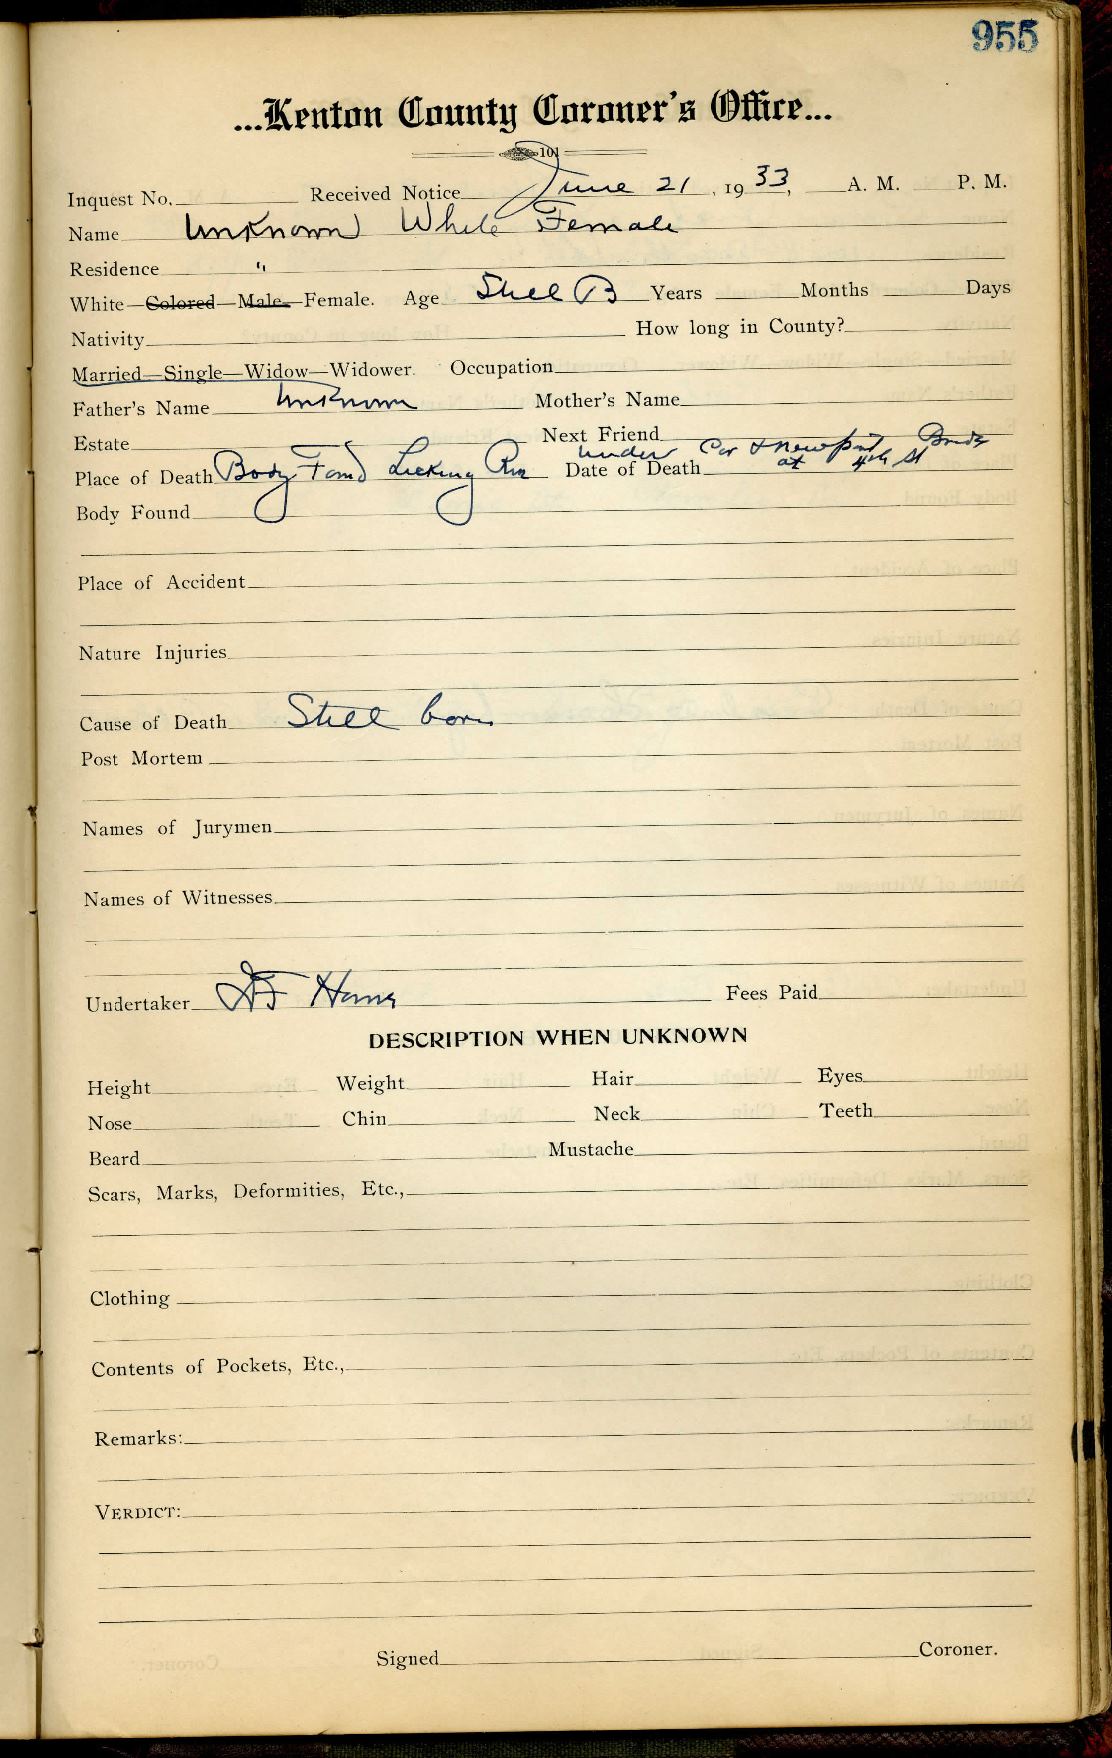 955
...Kenton County Coroner's Office...
101
Inquest No. Received Notice June 21, 1933, A. M. P. M.
Name Unknown White Female
Residence "
White—Colored—Male—Female. Age Still B Years Months Days
Nativity How long in County?
Married—Single—Widow—Widower. Occupation
Father's Name Unknown Mother's Name
Estate Next Friend
Place of Death Body Found Licking River Date of Death under Cov & Newport Bridge at 4th St
Body Found
Place of Accident
Nature Injuries
Cause of Death Still born
Post Mortem
Names of Jurymen
Names of Witnesses
Undertaker Fees Paid
DESCRIPTION WHEN UNKNOWN
Height Weight Hair Eyes
Nose Chin Neck Teeth
Beard Mustache
Scars, Marks, Deformities, Etc.,
Clothing
Contents of Pockets, Etc.,
Remarks:
VERDICT:
Signed Coroner.